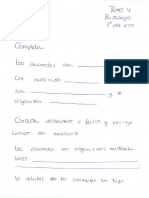 Tema 4
Biología
1º de ESO
Completa:
Los animales son
su nutrición
son y se
organizan
Contesta verdadero o falso y corrige
Los animales son organismos multicelula-
res
la célula de los animales es tipo